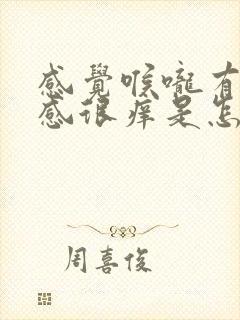 感覺喉嚨有
感很痒是怎
周喜俊